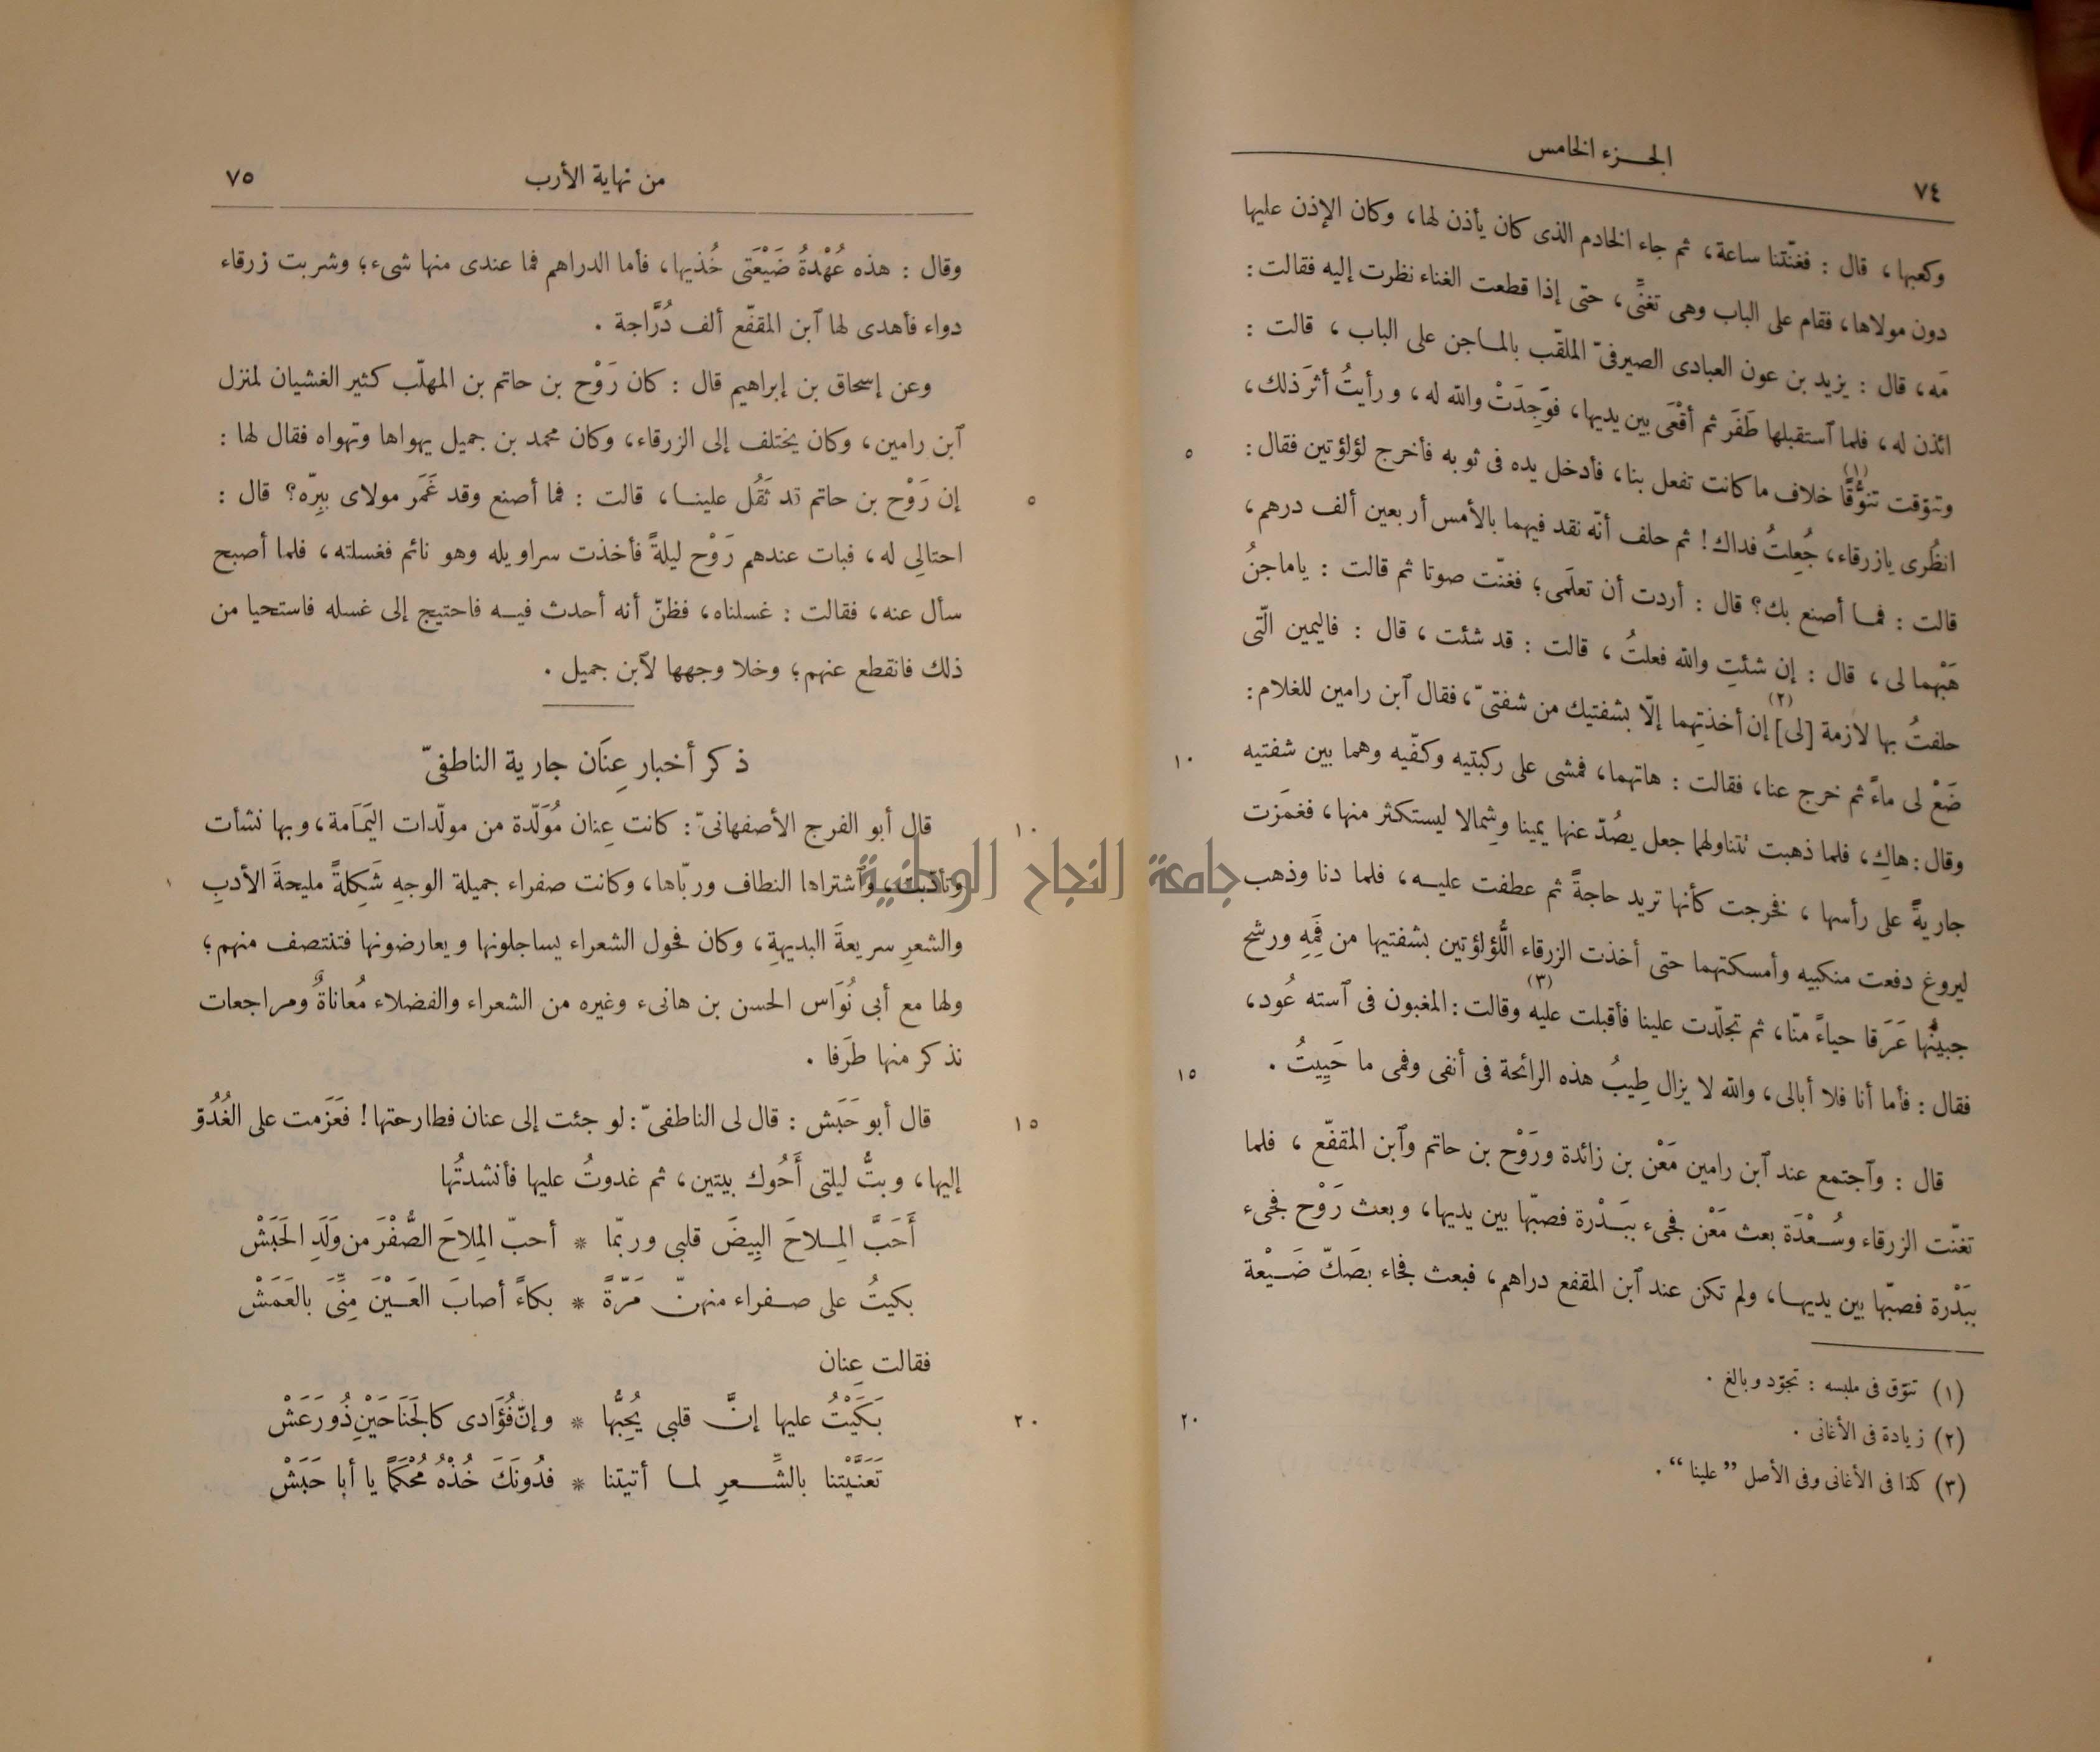 الجزء الخامس
٧٤
وكعبها، قال : فغنّتنا ساعة، ثم جاء الخادم الذى كان يأذن لها، وكان الإذن عليها
دون مولاها، فقام على الباب وهى تغنِّى، حتى إذا قطعت الغناء نظرت إليه فقالت :
مَه، قال : يزيد بن عون العبادى الصيرفىّ الملقّب بالماجن على الباب، قالت :
ائذن له، فلما ٱستقبلها طَفَر ثم أقْعَى بين يديها، فوَجِدَتْ والله له، ورأيتُ أثرَ ذلك،
وتنوّقت تنوُّقًا (١) خلاف ما كانت تفعل بنا، فأدخل يده فى ثوبه فأخرج لؤلؤتين فقال :
٥
انظُرى يازرقاء، جُعِلتُ فداك! ثم حلف أنّه نقد فيهما بالأمس أربعين ألف درهم،
قالت : فما أصنع بك؟ قال : أردت أن تعلَمى؛ فغنّت صوتا ثم قالت : ياماجنُ
هَبْهما لى، قال : إن شئتِ والله فعلتُ، قالت : قد شئت، قال : فاليمين الّتى
حلفتُ بها لازمة [لى] (٢) إن أخذتِهما إلّا بشفتيك من شفتىّ، فقال ٱبن رامين للغلام :
ضَعْ لى ماءً ثم خرج عنا، فقالت : هاتهما، فمشى على ركبتيه وكفّيه وهما بين شفتيه
١٠
وقال : هاكِ، فلما ذهبت تتناولهما جعل يصُدّ عنها يمينا وشِمالا ليستكثر منها، فغمَزت
جاريةً على رأسها، فخرجت كأنها تريد حاجةً ثم عطفت عليه، فلما دنا وذهب
ليروغ دفعت منكبيه وأمسكتهما حتى أخذت الزرقاء اللُّؤلؤتين بشفتيها من فَمِهِ ورشح
جبينُها عَرَقا حياءً منّا، ثم تجلّدت علينا فأقبلت عليه (٣) وقالت : المغبون فى ٱسته عُود،
فقال : فأما أنا فلا أبالى، والله لا يزال طِيبُ هذه الرائحة فى أنفى وفمى ما حَيِيتُ .
١٥
قال : وٱجتمع عند ٱبن رامين مَعْن بن زائدة ورَوْح بن حاتم وٱبن المقفّع، فلما
تغنّت الزرقاء وسُعْدَة بعث مَعْن فجىء ببَدْرة فصبّها بين يديها، وبعث رَوْح فجىء
ببَدْرة فصبّها بين يديها، ولم تكن عند ٱبن المقفع دراهم، فبعث فجاء بصَكّ ضَيْعة
(١) تنوّق فى ملبسه : تجوّد وبالغ .
(٢) زيادة فى الأغانى .
٢٠
(٣) كذا فى الأغانى وفى الأصل ” علينا “ .
من نهاية الأرب
٧٥
وقال : هذه عُهْدةُ ضَيْعَتى خُذيها، فأما الدراهم فما عندى منها شىء؛ وشربت زرقاء
دواء فأهدى لها ٱبن المقفّع ألف دُرَّاجة .
وعن إسحاق بن إبراهيم قال : كان رَوْح بن حاتم بن المهلّب كثير الغشيان لمنزل
ٱبن رامين، وكان يختلف إلى الزرقاء، وكان محمد بن جميل يهواها وتهواه فقال لها :
إن رَوْح بن حاتم قد ثَقُل علينا، قالت : فما أصنع وقد غَمَر مولاى ببِرّه؟ قال :
٥
احتالِى له، فبات عندهم رَوْح ليلةً فأخذت سراويله وهو نائم فغسلته، فلما أصبح
سأل عنه، فقالت : غسلناه، فظنّ أنه أحدث فيه فاحتيج إلى غسله فاستحيا من
ذلك فانقطع عنهم؛ وخلا وجهها لٱبن جميل .
ذكر أخبار عِنَان جارية الناطفىّ
قال أبو الفرج الأصفهانىّ : كانت عِنان مُوَلّدة من مولّدات اليَمَامة، وبها نشأت
١٠
وتأدّبت، وٱشتراها النطاف وربّاها، وكانت صفراء جميلة الوجهِ شَكِلةً مليحةَ الأدبِ
والشعرِ سريعةَ البديهةِ، وكان فحول الشعراء يساجلونها ويعارضونها فتنتصف منهم؛
ولها مع أبى نُوَاس الحسن بن هانىء وغيره من الشعراء والفضلاء مُعاناةٌ ومراجعات
نذكر منها طرَفا .
قال أبو حَبَش : قال لى الناطفىّ : لو جئت إلى عنان فطارحتها! فعَزَمت على الغُدُوّ
١٥
إليها، وبتُّ ليلتى أَحُوك بيتين، ثم غدوتُ عليها فأنشدتُها
أَحَبَّ المِلاحَ البِيضَ قلبى وربّما * أحبّ المِلاحَ الصُّفْرَ من وَلَدِ الحَبَشْ
بكيتُ على صفراء منهنّ مَرّةً * بكاءً أصابَ العَيْنَ مِنِّىَ بالعَمَشْ
فقالت عِنان
بَكَيْتُ عليها إنَّ قلبى يُحِبُّها * وإنّ فُؤَادى كالجَنَاحَيْنِ ذُو رَعَشْ
٢٠
تَعَنَّيْتنا بالشِّعرِ لما أتيتنا * فدُونَكَ خُذْهُ مُحْكَمًا يا أبا حَبَشْ
جامعة النجاح الوطنية